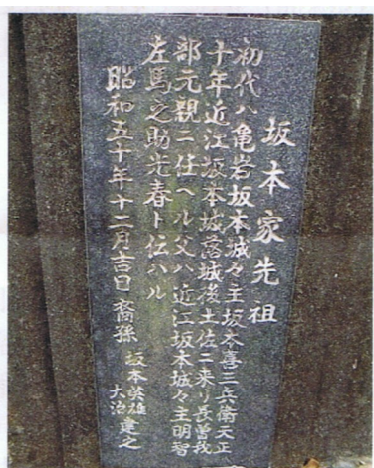 坂本家先祖
初代ハ亀岩坂本城々主坂本喜三兵衛天正
十年近江坂本城落城後土佐ニ来リ長曽我
部元親ニ仕ヘル父ハ近江坂本城々主明智
左馬之助光春ト伝ハル
昭和五十年十二月吉日 裔孫 坂本英雄
大治 建之